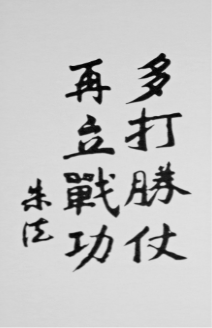 多打勝仗
再立戰功
朱德